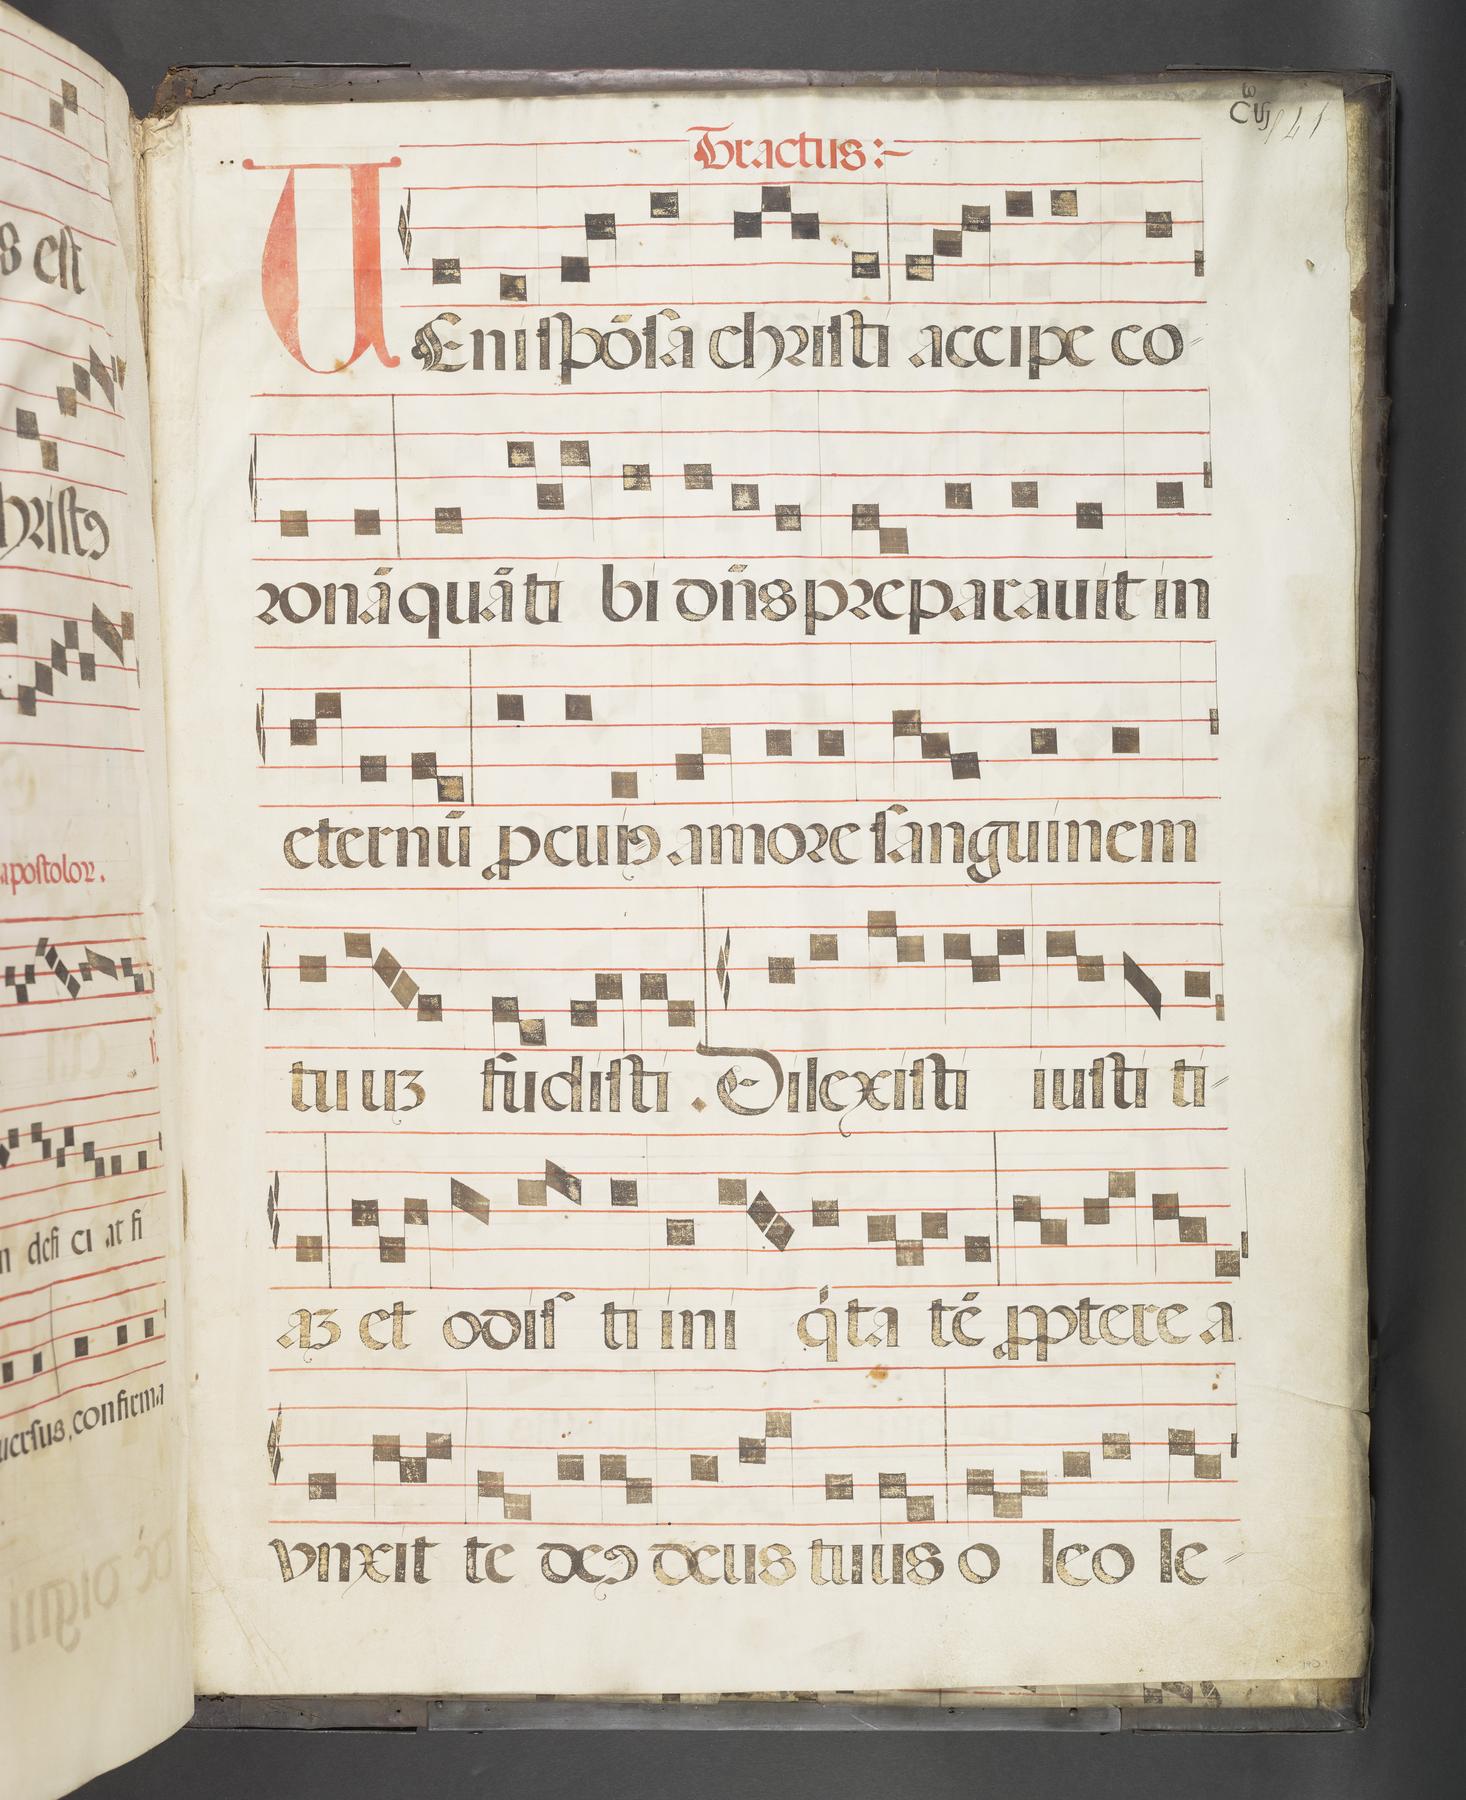 s est
hristꝯ
apostolor.
n defi ci at fi
uersus, confirma
Tractus:~
VEni spōsa christi accipe co
ronā quā ti bi dn̄s preparauit in
eternū ꝓ cuiꝯ amore sanguinem
tu uꝫ fudisti . Dilexisti iusti ti
aꝫ et odis ti ini q̇ta tē ꝓpterea
vnxit te deꝯ deus tuus o leo le